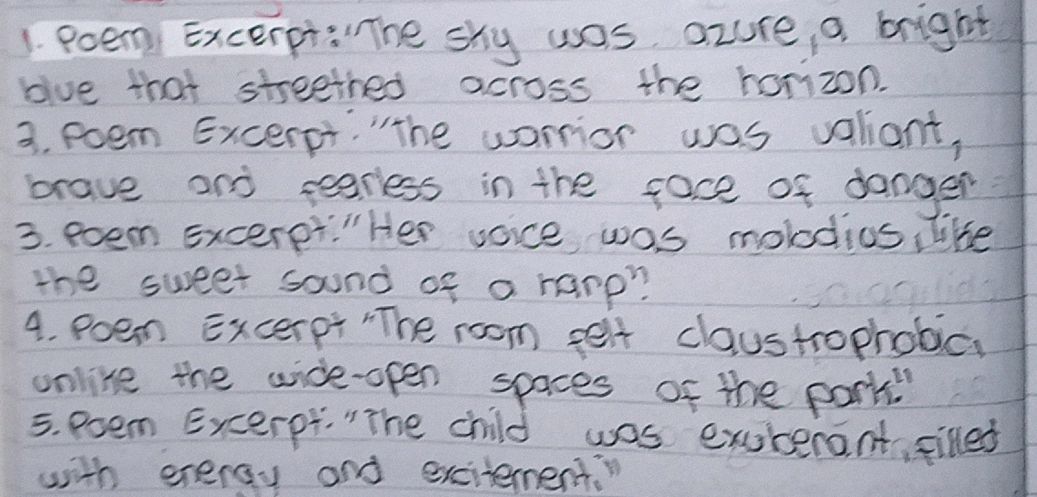 1. Poem Excerpt: "The sky was azure, a bright
blue that streethed across the horizon.
2. Poem Excerpt: "The warrior was valiant,
brave and fearless in the face of danger
3. Poem Excerpt: "Her voice was molodios, like
the sweet sound of a harp".
4. Poem Excerpt "The room felt claustrophobic,
unlike the wide-open spaces of the park."
5. Poem Excerpt. "The child was exuberant, filled
with energy and excitement."